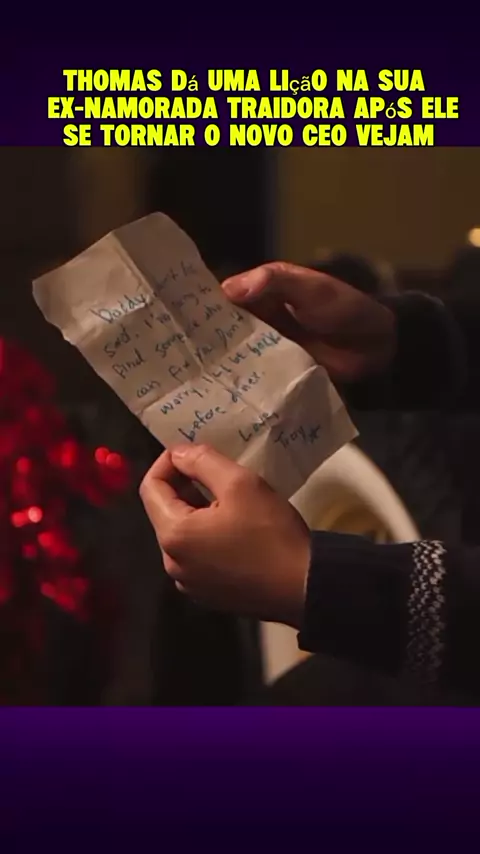 THOMAS Dá UMA LIçãO NA SUA
EX-NAMORADA TRAIDORA APóS ELE
SE TORNAR O NOVO CEO VEJAM
Daddy, don't be
sad. I'm going to
find someone who
can fix ya. Don't
worry, I'll be back
before diner.
Love,
Troy